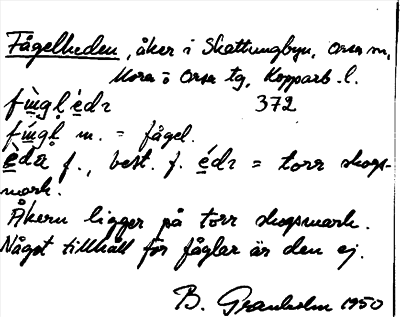 Fågelheden, åker i Skattungbyn, Orsa sn,
Mora o Orsa tg, Kopparb. l.
372
m. = fågel.
f., best. f. = torr skogs-
mark.
Åkern ligger på torr skogsmark.
Något tillhåll för fåglar är den ej.
B. Granholm 1950